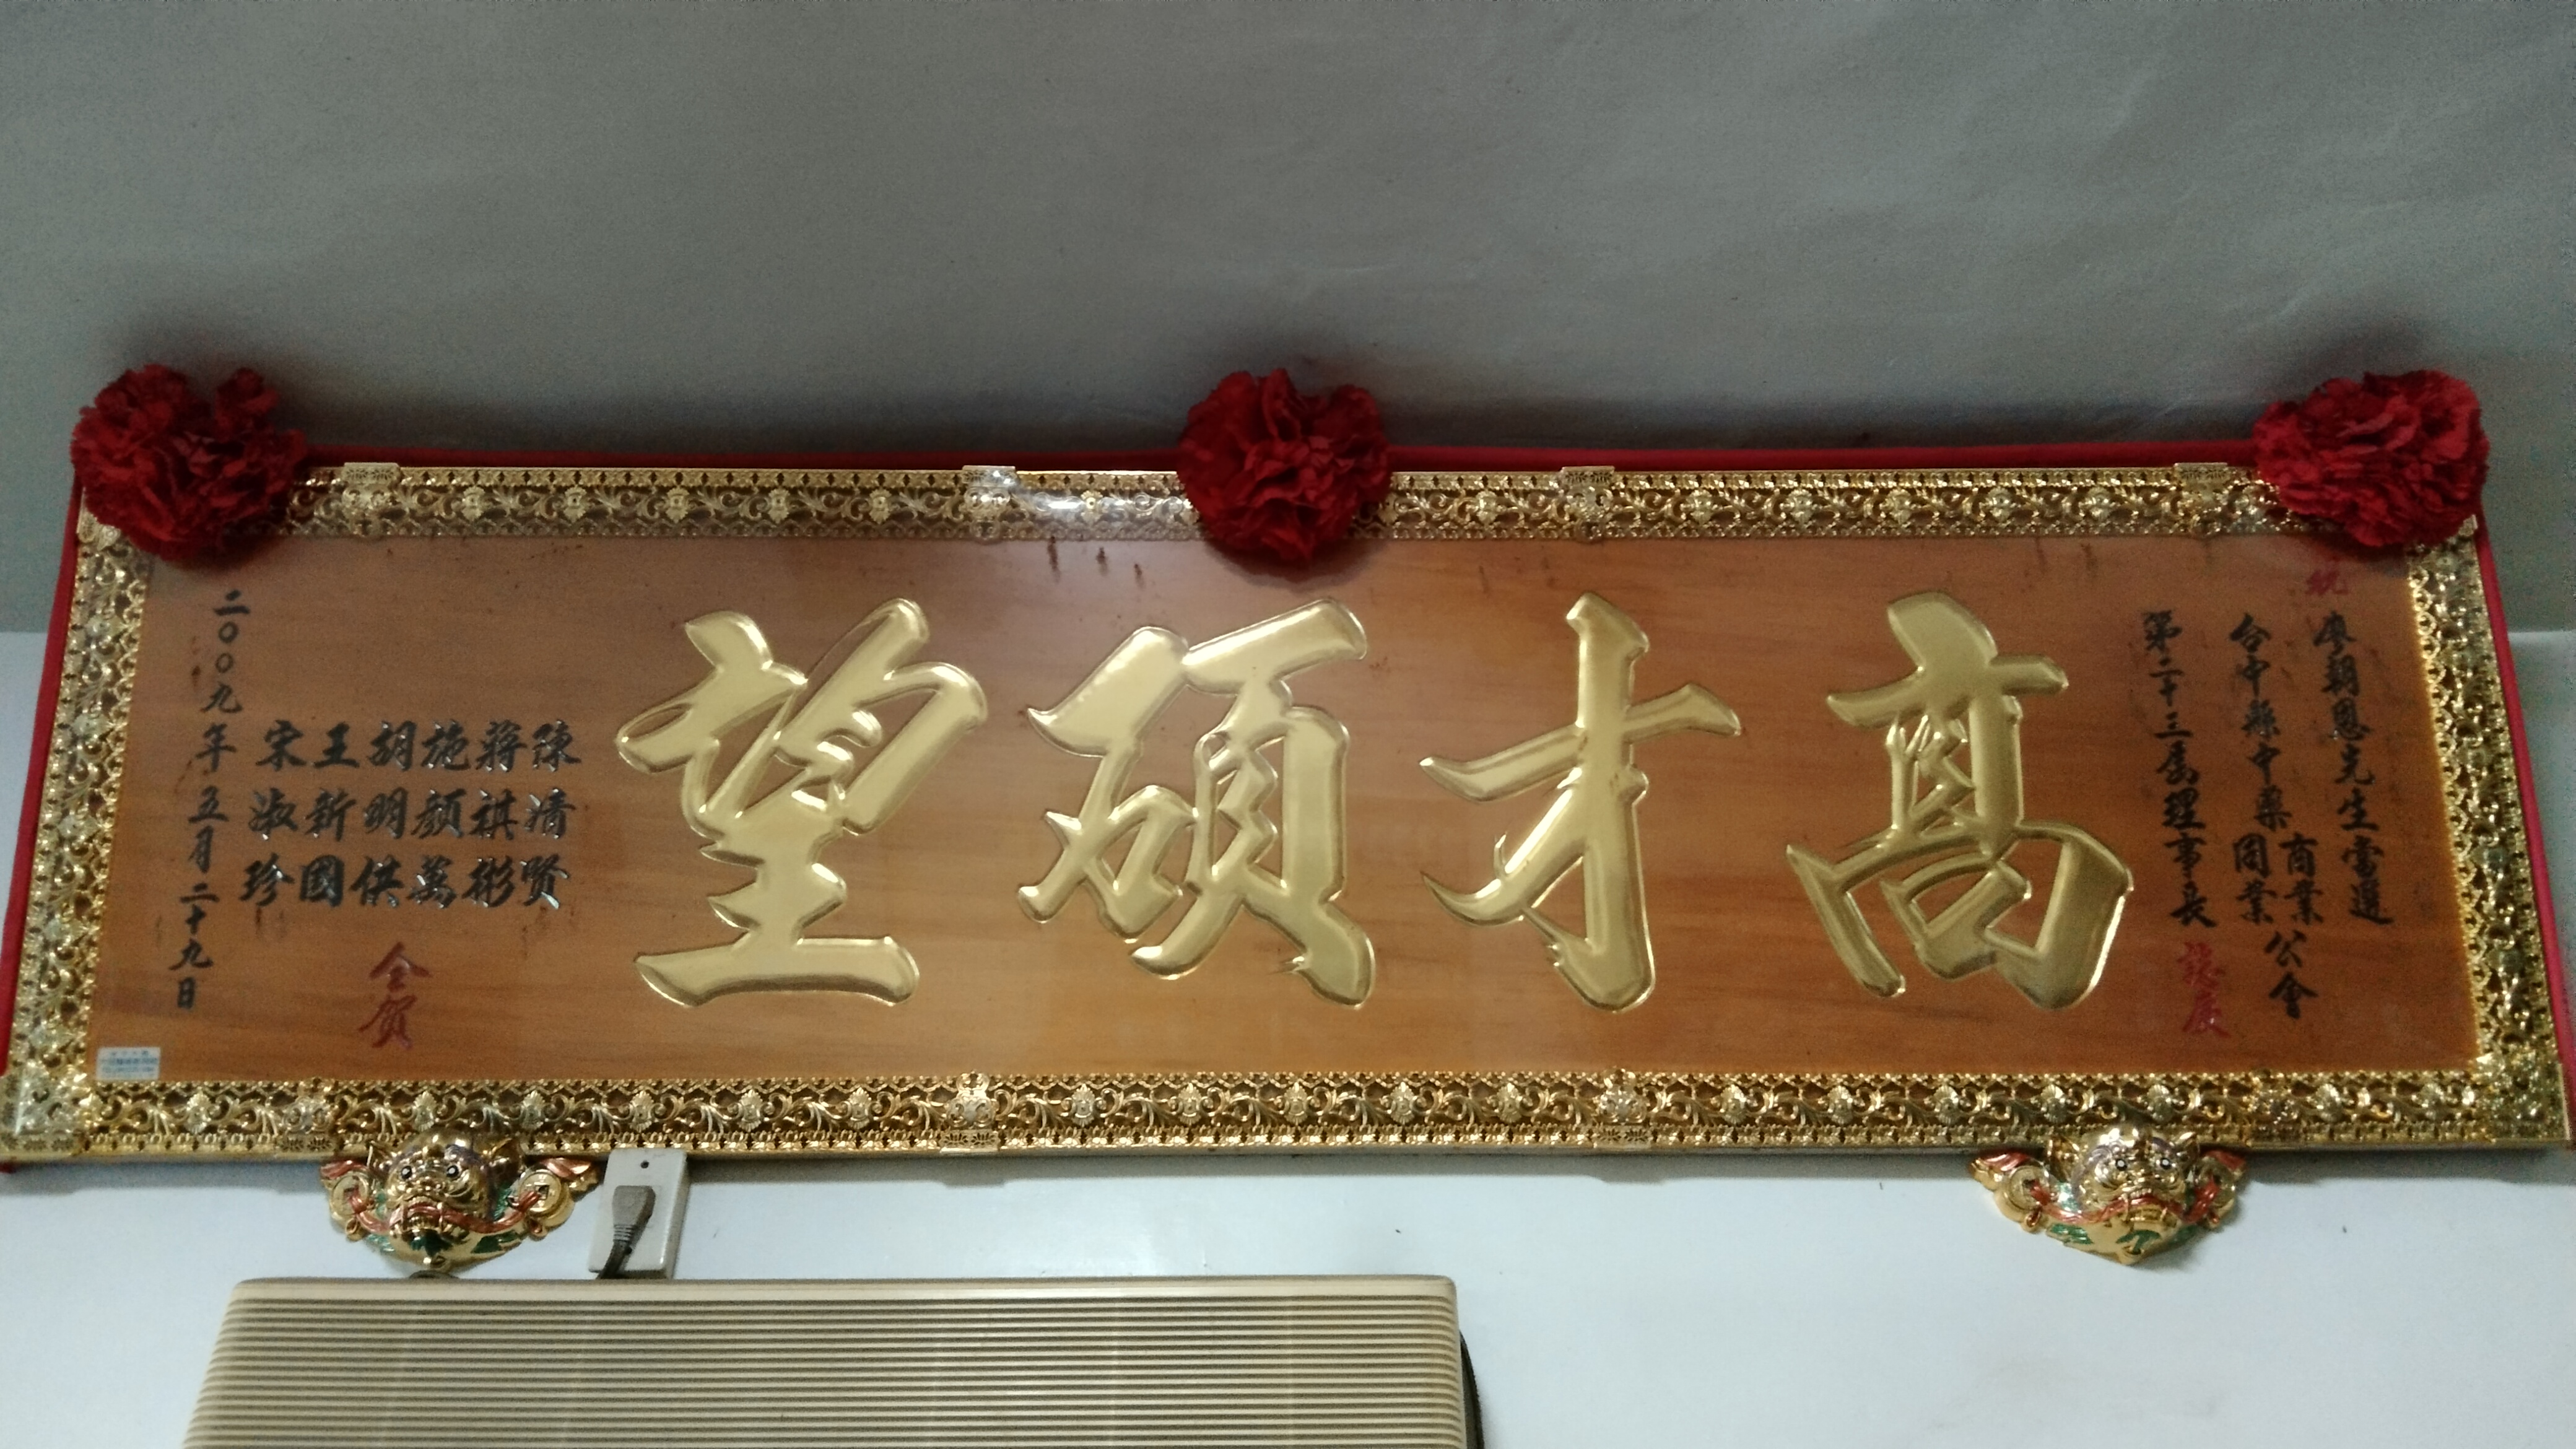 祝
廖朝恩先生當選
台中縣中藥商業同業公會
第二十三屆理事長誌慶
高才碩望
陳清賢
蔣祺彬
施顏萬
胡明供
王新國
宋淑珍
仝賀
二〇〇九年五月二十九日